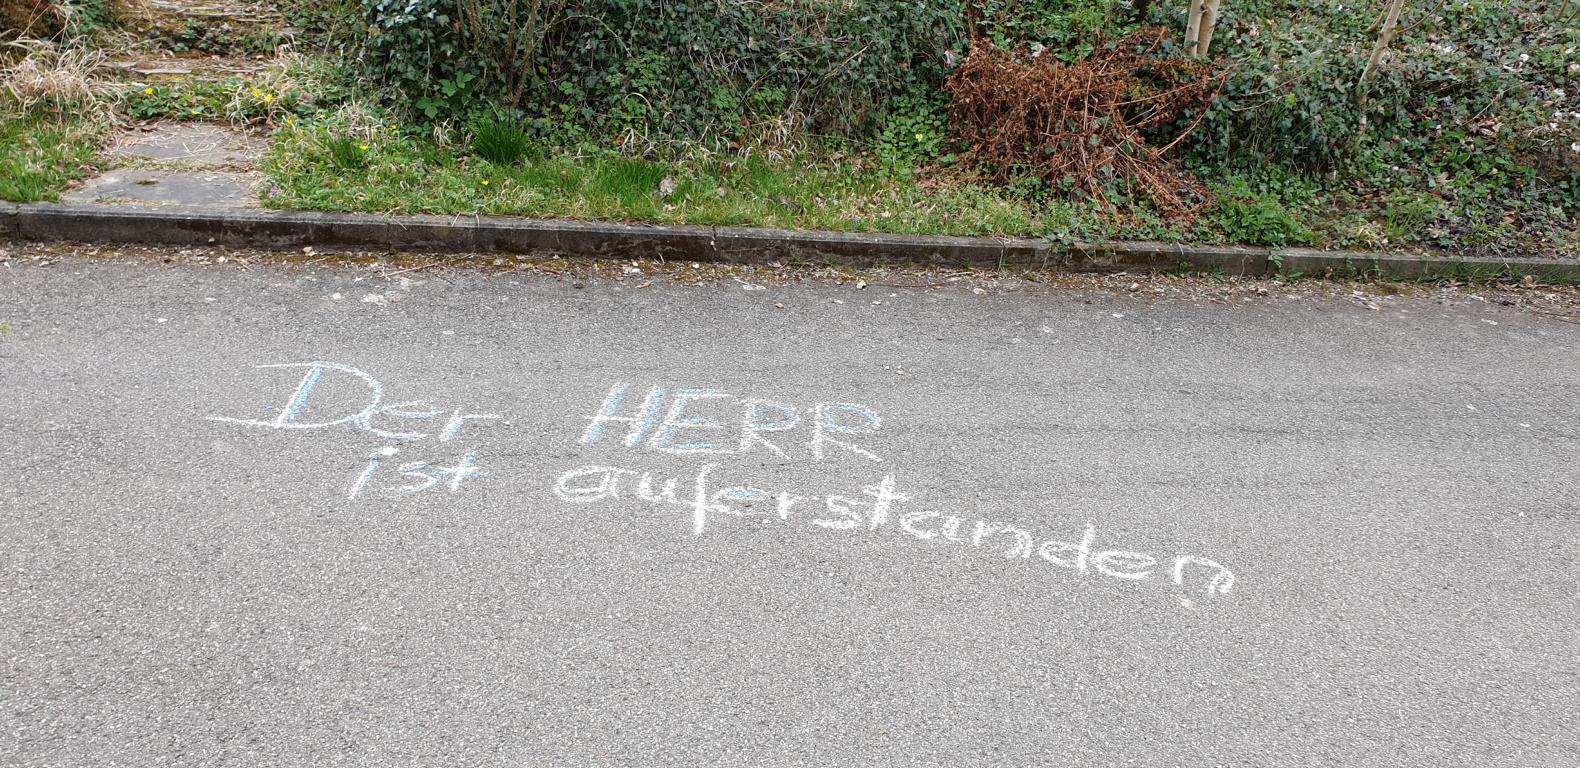 Der HERR
ist auferstanden